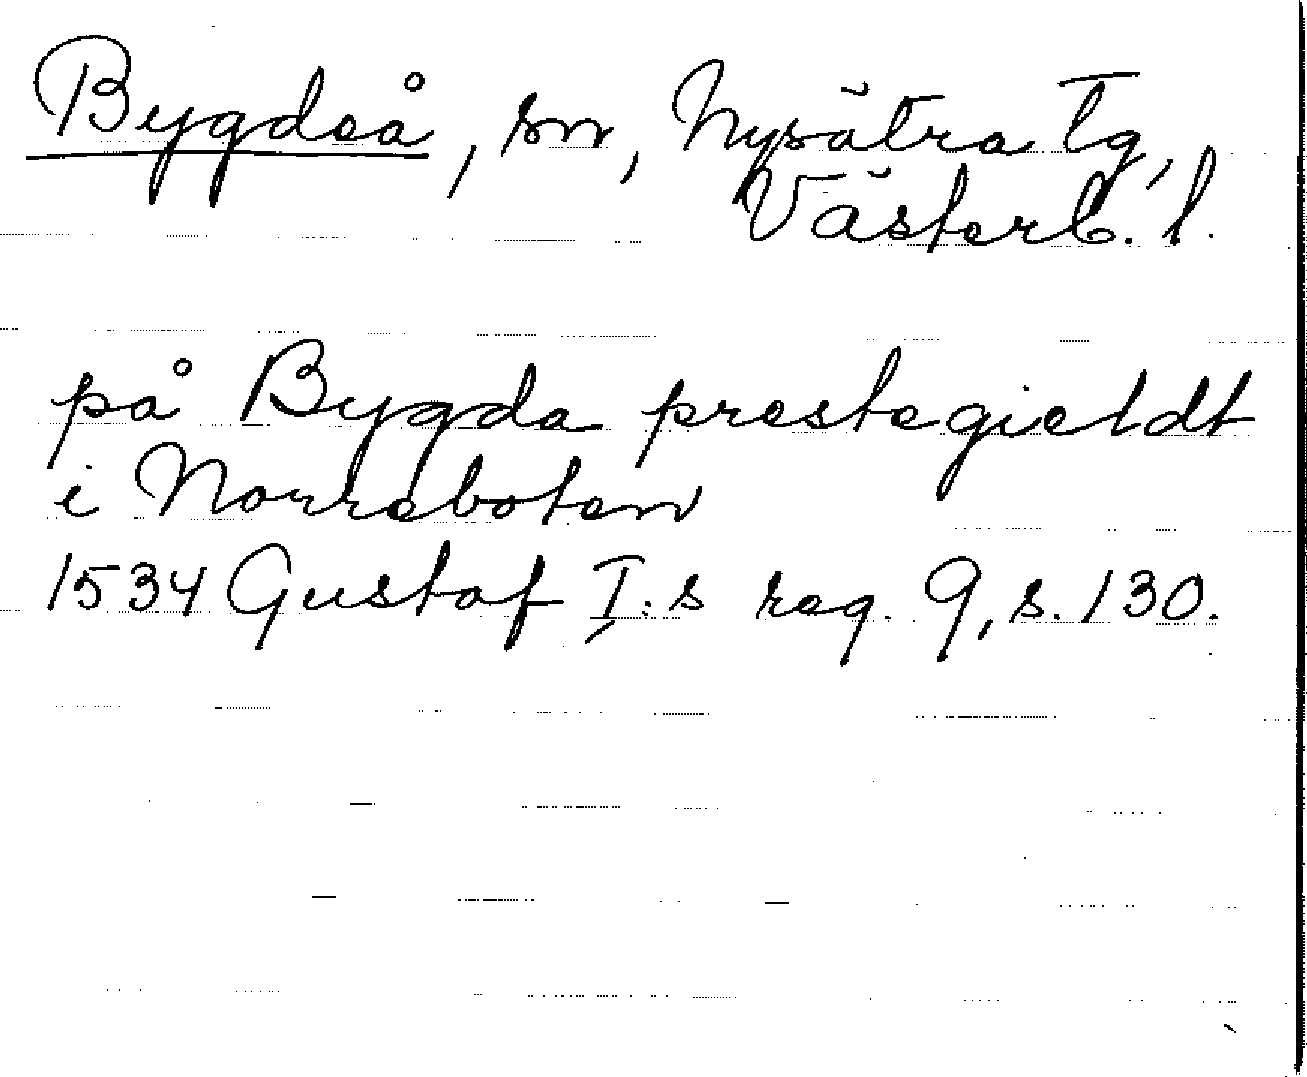 Bygdeå, sn, Nysätra tg,
Västerb. l.
på Bygda prestegieldt
i Norreboten
1534 Gustaf I:s reg. 9, s. 130.